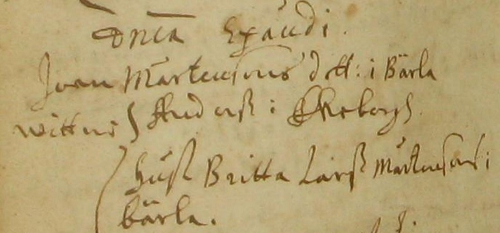 Dnica Exaudi.
Joen Mårtensons dtt: i Bärla
wittne Anders i Ekeborg
hust Britta Larß Mårtensons i
bärla.